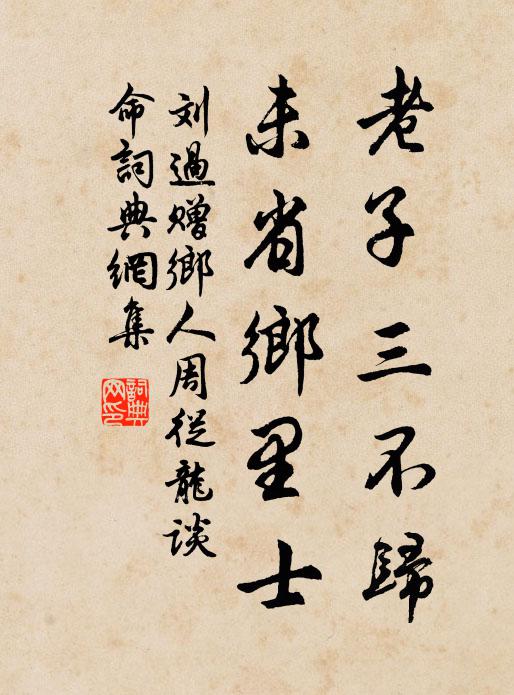 老子三不歸
未省鄉里士
刘過贈鄉人周從龍談
命詞典網集
詞典網印